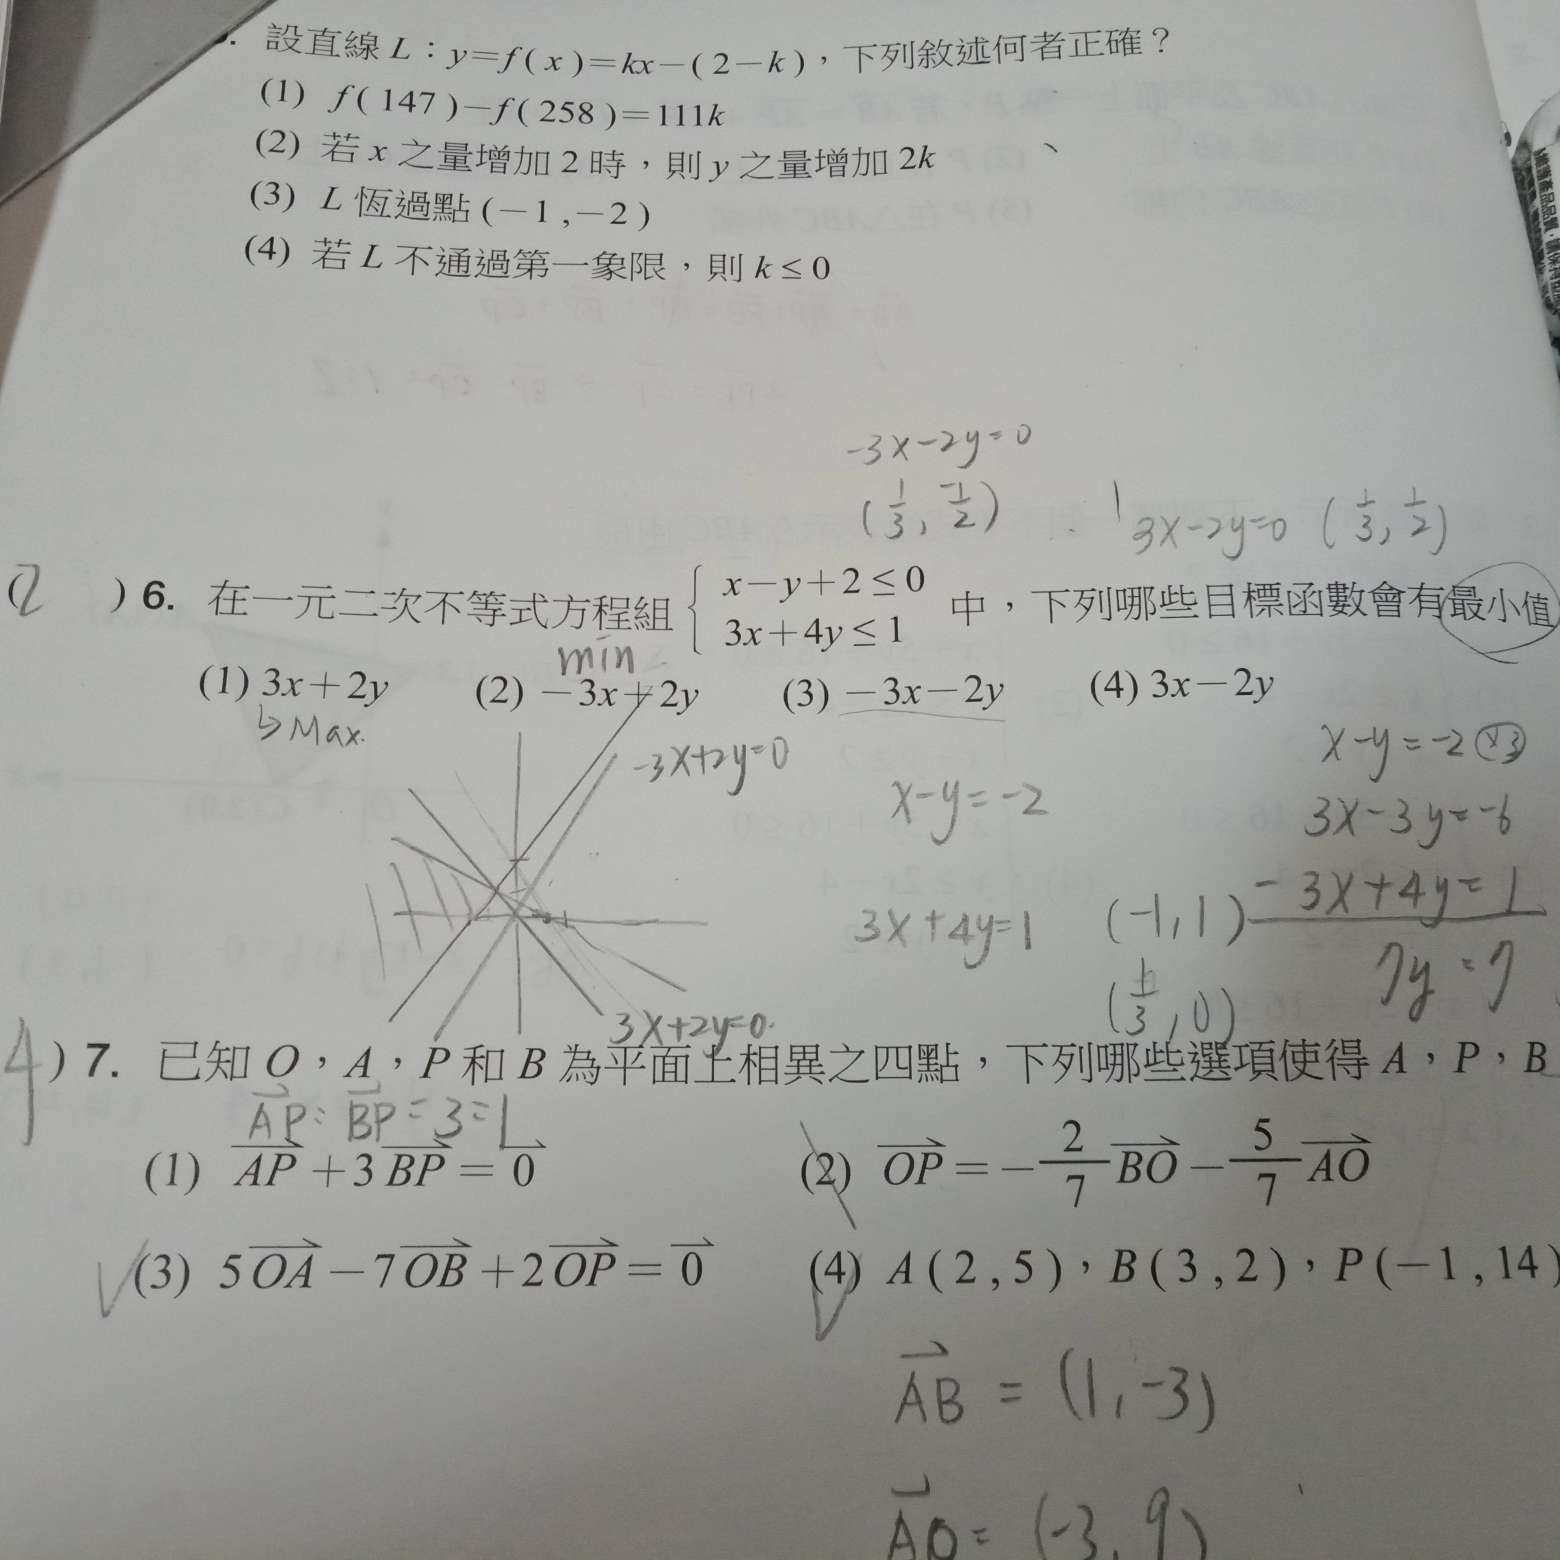 設直線 L：y=f( x )=kx-( 2-k )，下列敘述何者正確？
(1) f( 147 )-f( 258 )=111k
(2) 若 x 之量增加 2 時，則 y 之量增加 2k
(3) L 恆過點 ( -1 , -2 )
(4) 若 L 不通過第一象限，則 k ≤ 0
-3x-2y=0
(1/3, -1/2)
3x-2y=0 (1/3, 1/2)
(2 ) 6. 在一元二次不等式方程組 { x-y+2 ≤ 0 3x+4y ≤ 1 中，下列哪些目標函數會有最小值
min
(1) 3x+2y (2) -3x+2y (3) -3x-2y (4) 3x-2y
↳ Max.
-3x+2y=0
x-y=-2
x-y=-2 ×3
3x-3y=-6
3x+4y=1
(-1,1)
- 3x+4y=1
7y=7
(1/3, 0)
3x+2y=0
4 ) 7. 已知 O，A，P 和 B 為平面上相異之四點，下列哪些選項使得 A，P，B
AP:BP=3=1
(1) AP+3BP=0 (2) OP=-2/7BO-5/7AO
(3) 5OA-7OB+2OP=0 (4) A( 2 , 5 )，B( 3 , 2 )，P( -1 , 14 )
AB = (1, -3)
= (-3, 9)